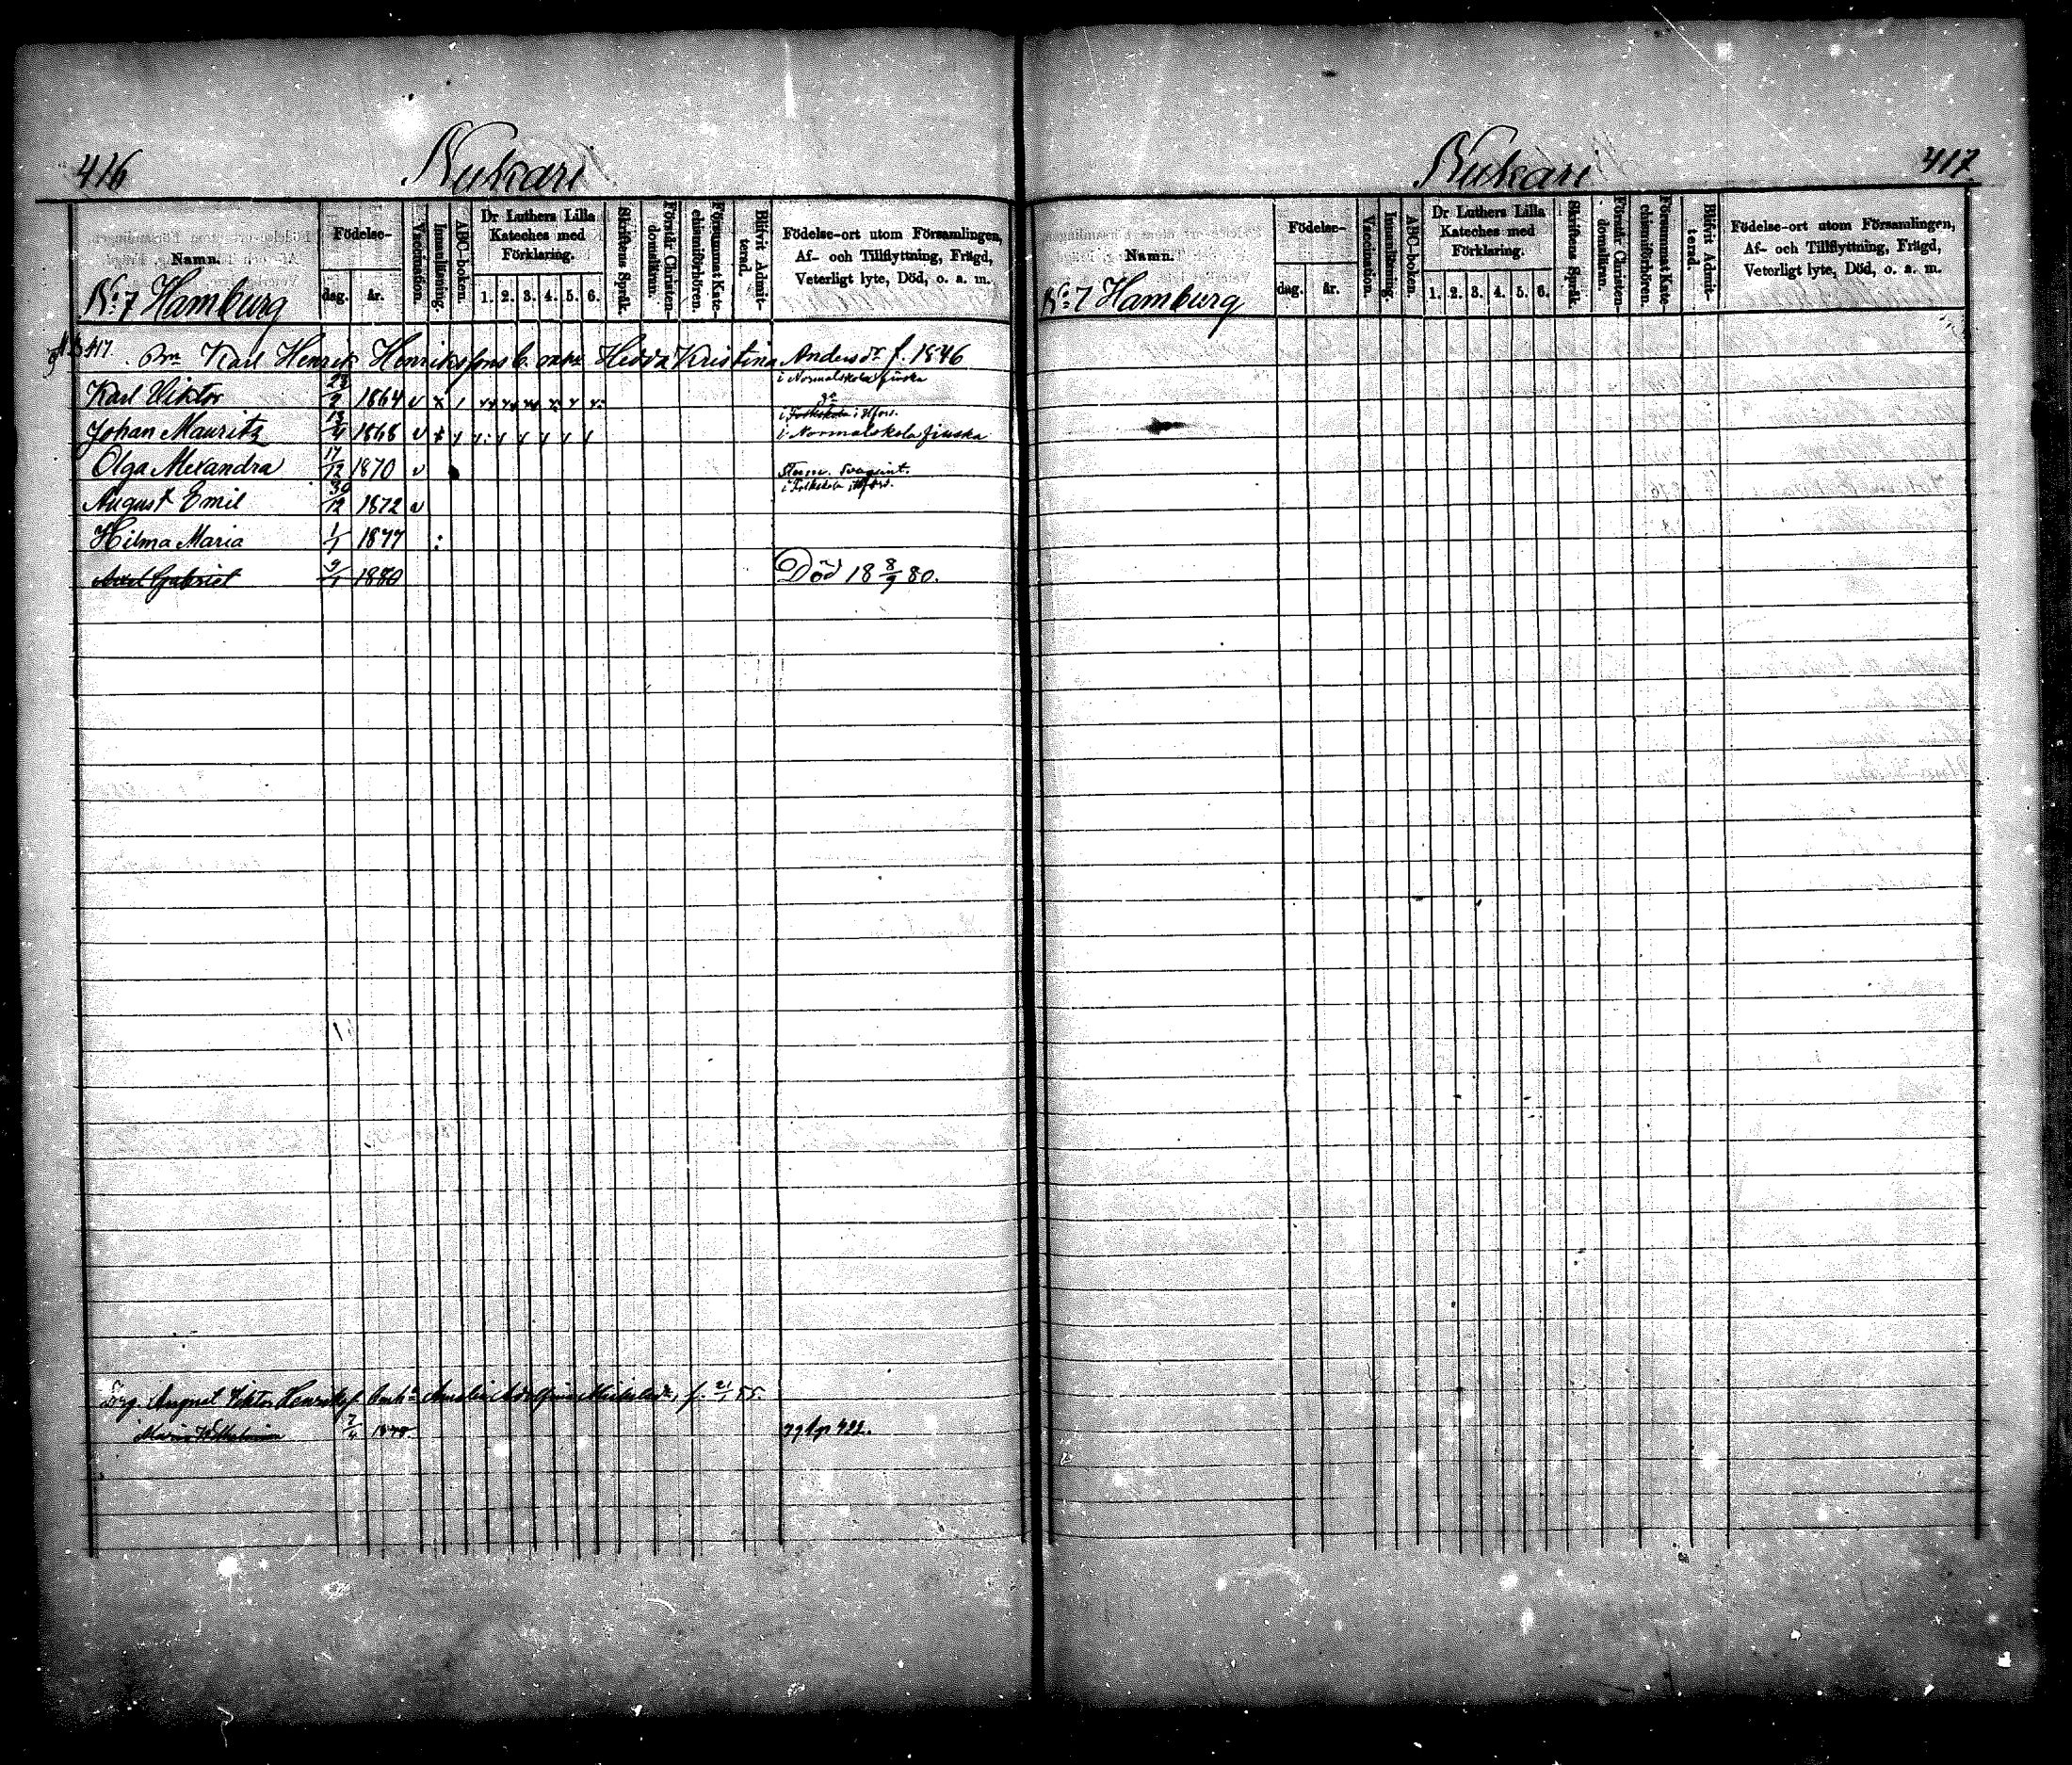 416
Nukari
Namn.
Födelse-
dag.
år.
Vaccination.
Innanläsning.
ABC-boken.
Dr Luthers Lilla
Kateches med
Förklaring.
1. 2. 3. 4. 5. 6.
Skriftens Språk.
Förstår Christen-
domslärn.
Försummat Kate-
chismiförhören.
Blifvit Admit-
terad.
Födelse-ort utom Församlingen,
Af- och Tillflyttning, Frägd,
Veterligt lyte, Död, o. a. m.
No 7 Hamburg
417. Bn Karl Henrik Henrikssons b. Hedda Kristina Andersdr f. 1846
i Normalskola finska
Karl Viktor 23/2 1864 v x 1
i Folkskola i Hfors.
Johan Mauritz 13/4 1868 v x
i Normalskola finska
Olga Alexandra 17/12 1870 v
i Folkskola i Hfors.
August Emil 30/12 1872 v
Hilma Maria 1/1 1877
Axel Gabriel 9/1 1880 Död 18 8/9 80.
August Viktor Henrikss. Amalia Adolfina f. 21/1 55.
Maria Wilhelmina 7/4 1878
422.
417
Nukari
Namn.
Födelse-
dag.
år.
Vaccination.
Innanläsning.
ABC-boken.
Dr Luthers Lilla
Kateches med
Förklaring.
1. 2. 3. 4. 5. 6.
Skriftens Språk.
Förstår Christen-
domsläran.
Försummat Kate-
chismiförhören.
Blifvit Admit-
terad.
Födelse-ort utom Församlingen,
Af- och Tillflyttning, Frägd,
Veterligt lyte, Död, o. a. m.
No 7 Hamburg